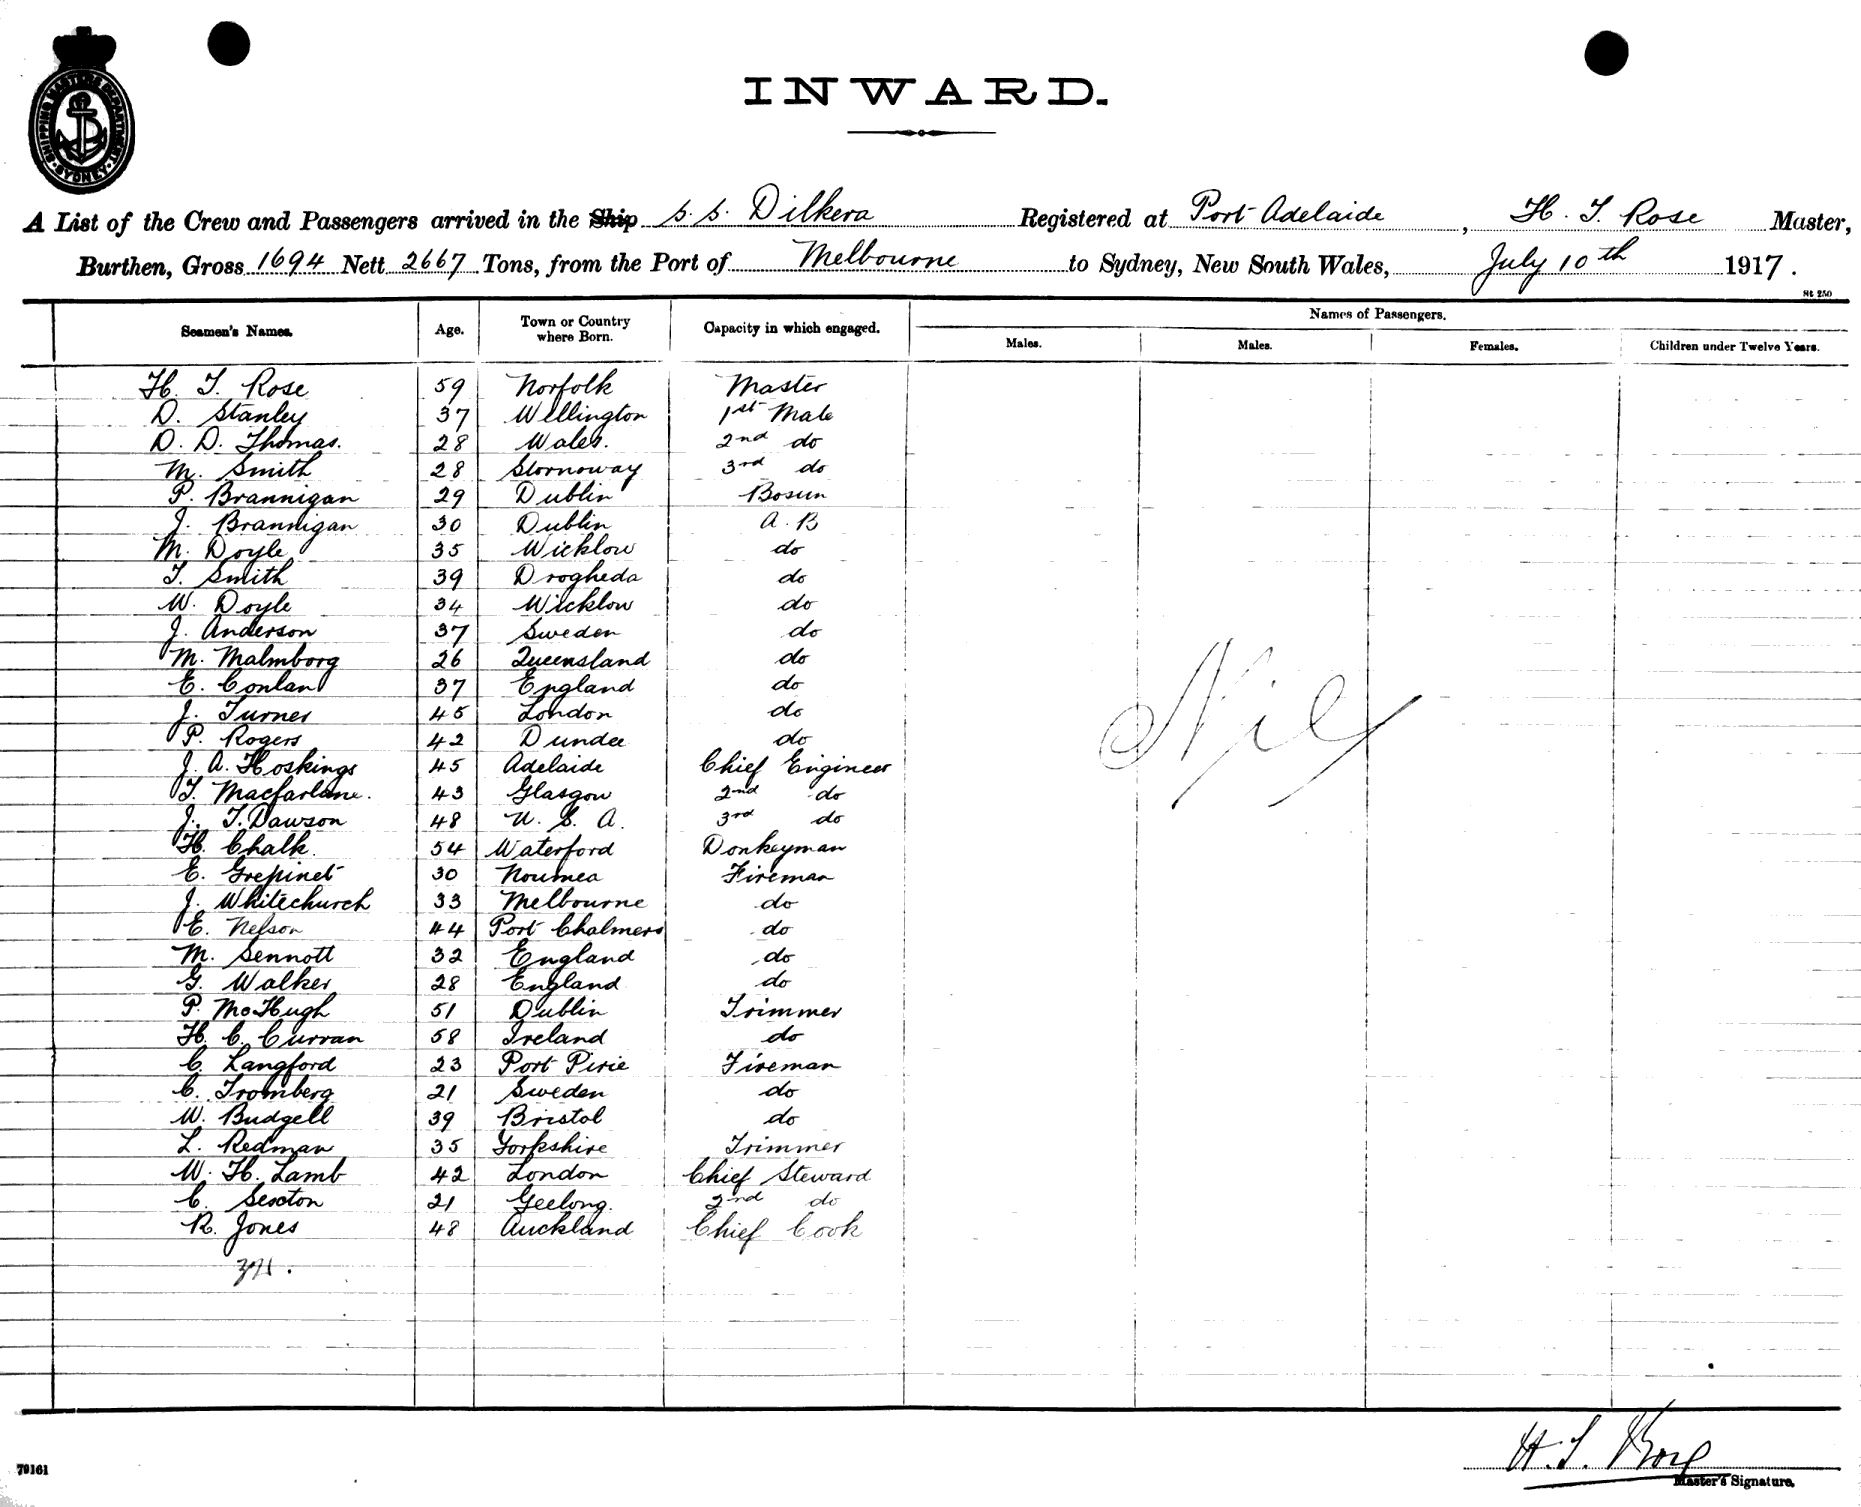 SHIPPING MASTERS DEPARTMENT SYDNEY
INWARD.
A List of the Crew and Passengers arrived in the Ship S.S. Dilkera Registered at Port Adelaide, H. T. Rose Master,
Burthen, Gross 1694 Nett 2667 Tons, from the Port of Melbourne to Sydney, New South Wales, July 10th 1917.
St 250
Seamen's Names. Age. Town or Country where Born. Capacity in which engaged. Names of Passengers.
Males. Males. Females. Children under Twelve Years.
H. T. Rose 59 Norfolk Master
D. Stanley 37 Wellington 1st Mate
D. D. Thomas. 28 Wales. 2nd do
M. Smith 28 Stornoway 3rd do
P. Brannigan 29 Dublin Bosun
J. Brannigan 30 Dublin A.B
M. Doyle 35 Wicklow do
T. Smith 39 Drogheda do
W. Doyle 34 Wicklow do
J. Anderson 37 Sweden do
M. Malmborg 26 Queensland do
E. Conlan 37 England do
J. Turner 45 London do
P. Rogers 42 Dundee do
J. A. Hoskings 45 Adelaide Chief Engineer
T. Macfarlane. 43 Glasgow 2nd do
J. T. Dawson 48 U. S. A. 3rd do
H. Chalk. 54 Waterford Donkeyman
E. Grepinet 30 Noumea Fireman
J. Whitechurch 33 Melbourne do
E. Nelson 44 Port Chalmers do
M. Sennott 32 England do
G. Walker 28 England do
P. McHugh 51 Dublin Trimmer
H. C. Curran 58 Ireland do
C. Langford 23 Port Pirie Fireman
C. Tromberg 21 Sweden do
W. Budgell 39 Bristol do
L. Redman 35 Yorkshire Trimmer
W. H. Lamb 42 London Chief Steward
C. Sexton 21 Geelong. 2nd do
R. Jones 48 Auckland Chief Cook
Nil
H. T. Rose
Master's Signature.
79161